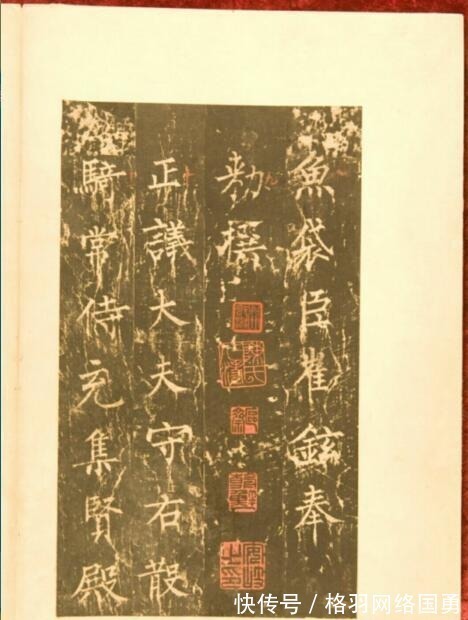 魚袋臣崔鉉奉
勅撰
正議大夫守右散
騎常侍充集賢殿
快传号 / 格羽网络国勇